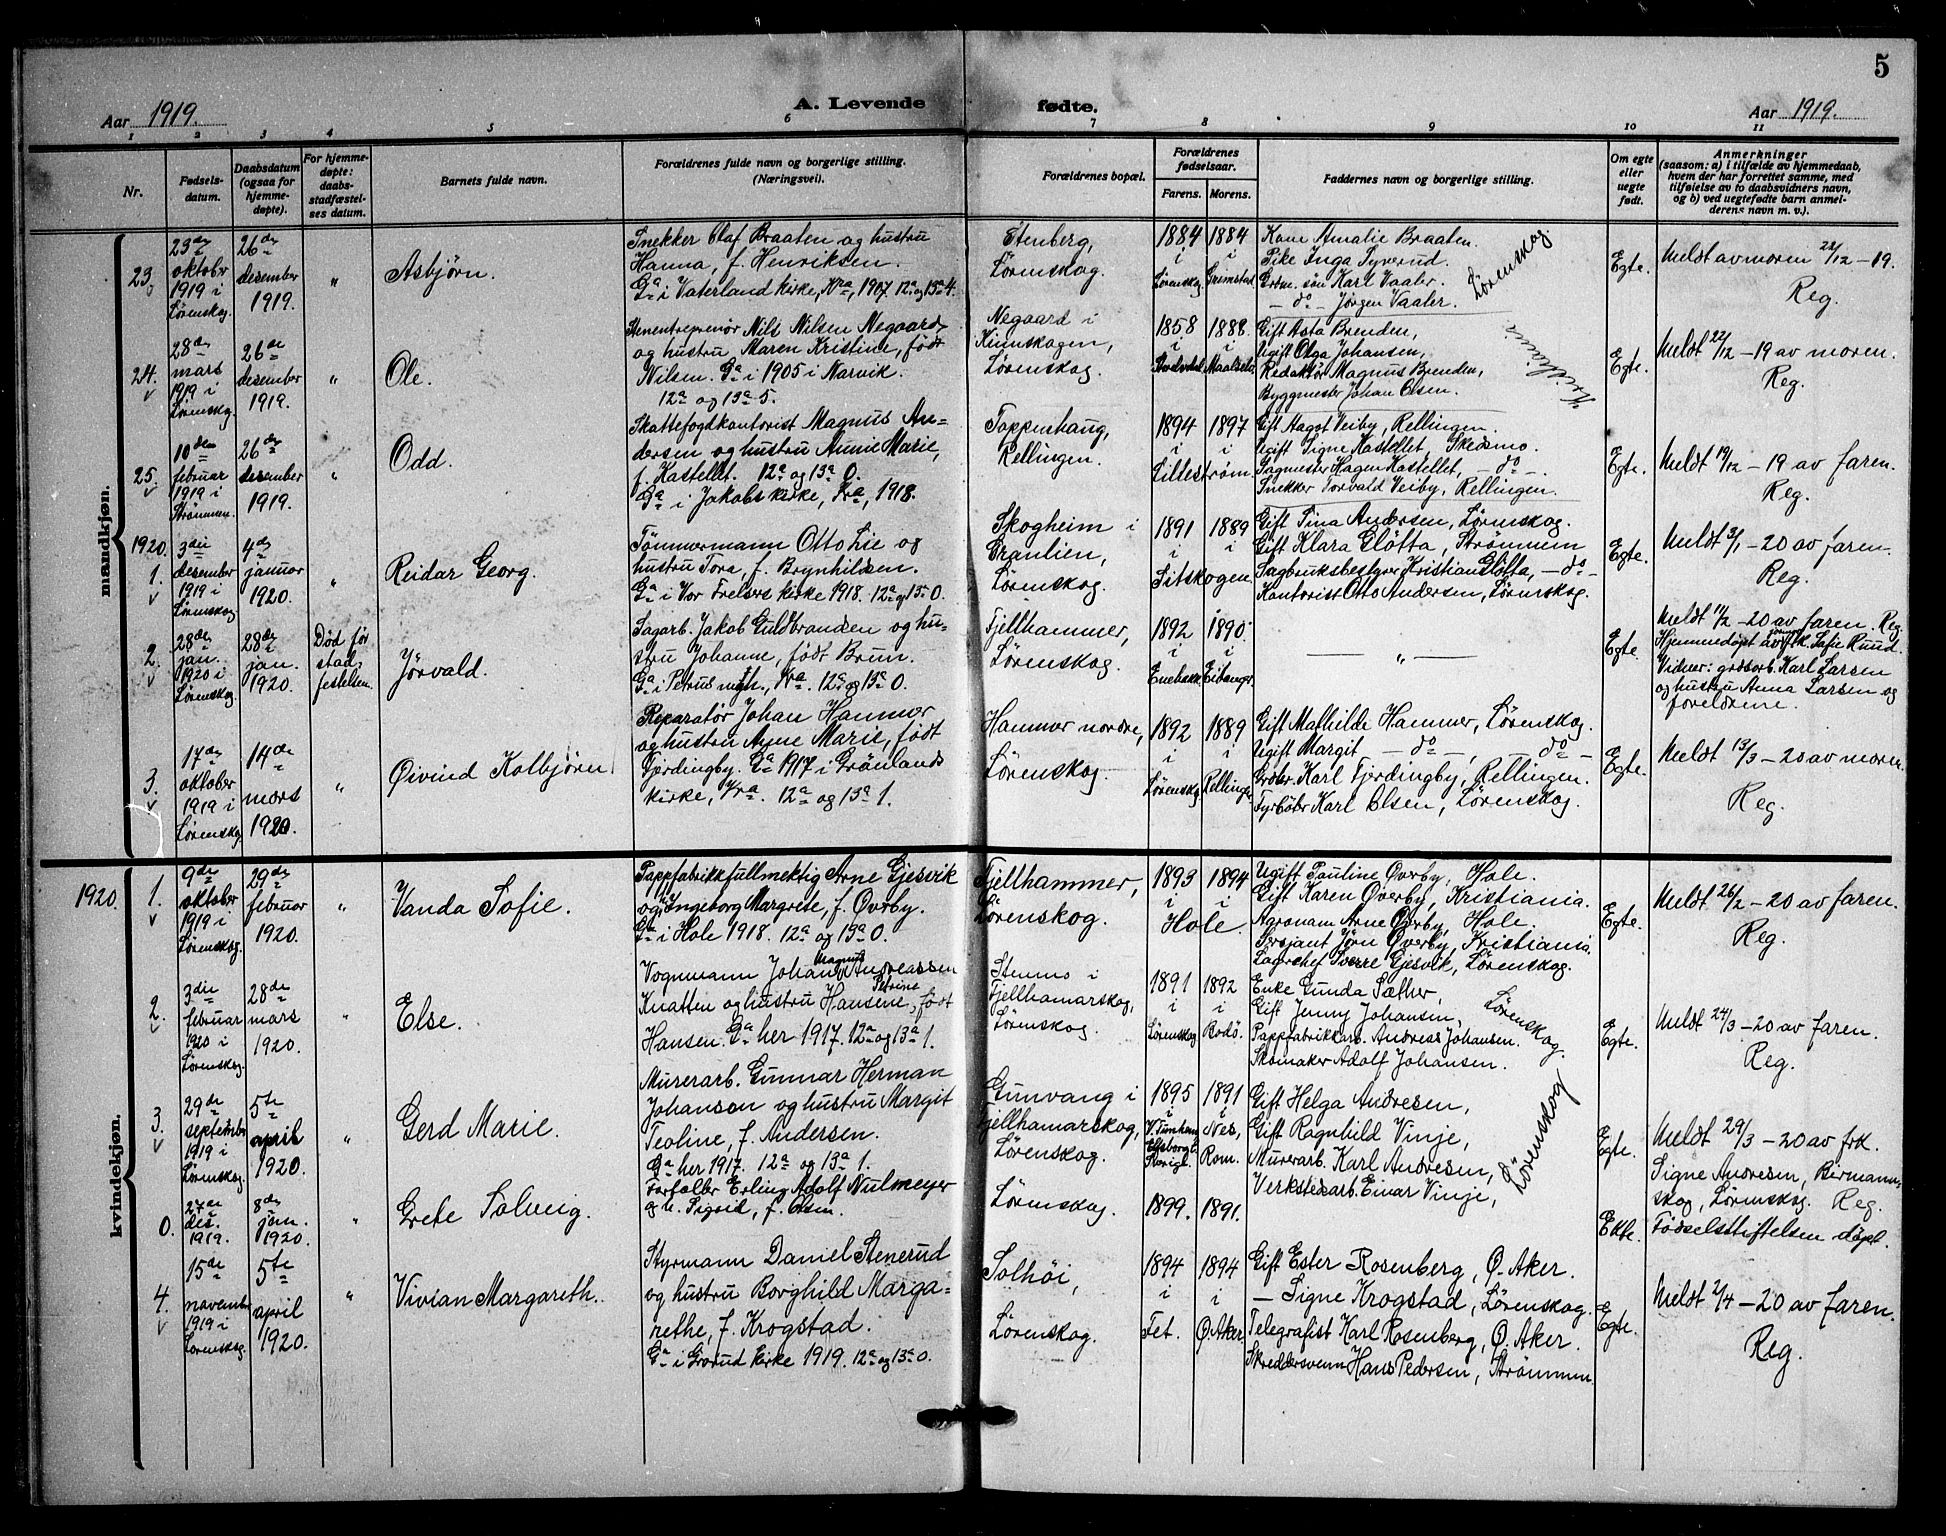 5
Aar 1919.
A. Levende fødte.
Aar 1919.
1 2 3 4 5 6 7 8 9 10 11
Nr.
Fødsels-
datum.
Daabsdatum
(ogsaa for
hjemme-
døpte).
For hjemme-
døpte:
daabs-
stadfæstel-
ses datum.
Barnets fulde navn.
Forældrenes fulde navn og borgerlige stilling.
(Næringsvei).
Forældrenes bopæl.
Forældrenes
fødselsaar.
Farens. Morens.
Faddernes navn og borgerlige stilling.
Om egte
eller
uegte
født.
Anmerkninger
(saasom: a) i tilfælde av hjemmedaab,
hvem der har forrettet samme, med
tilføielse av to daabsvidners navn,
og b) ved uegtefødte barn anmel-
derens navn m. v.).
mandkjøn.
23.
23de
oktober
1919 i
Lørenskog.
26de
desember
1919.
"
Asbjörn.
Snekker Olaf Braaten og hustru
Hanna, f. Henriksen.
Ga i Vaterland kirke, Kra, 1907. 12a og 13a 4.
Stenberg,
Lörenskog.
1884 1884
i i
Lörenskog. Grimstad.
Kone Amalie Braaten.
Pike Inga Tyverud.
Grdm. sön Karl Vaaler.
— do — Jørgen Vaaler.
Lörenskog.
Egte.
Meldt av moren 22/12 – 19.
Reg.
24.
28de
mars
1919 i
Lørenskog.
26de
desember
1919.
"
Ole.
Stenentreprenör Nils Nilsen Negaard
og hustru Maren Kristine, født
Nilsen. Ga i 1905 i Narvik.
12a og 13a 5.
Negaard i
Kinnskogen,
Lörenskog.
1858 1888
i i
Maalselv
Gift Asta Brenden,
Ugift Olga Johansen,
Redaktör Magnus Brenden,
Byggmester Johan Olsen.
Kristiania
Egte.
Meldt 22/12 – 19 av moren.
Reg.
25.
10den
februar
1919 i
Strömmen.
26de
desember
1919.
"
Odd.
Skattefogdkantorist Magnus An-
dersen og hustru Aunie Marie,
f. Kastellet. 12a og 13a 0.
Ga i Jakobs kirke, Kra, 1918.
Toppenhaug,
Rellingen.
1894 1897
i i
Lilleström.
Gift Aagot Veiby, Rellingen.
Ugift Signe Kastellet, Skedsmo.
Sagmester Hagen Kastellet, — do —.
Snekker Torvald Veiby, Rellingen.
Egte.
Meldt 19/12 – 19 av faren.
Reg.
1920.
1.
3die
desember
1919 i
Lörenskog
4de
januar
1920.
"
Reidar Georg.
Tömmermann Otto Lie og
hustru Tora, f. Brynhildsen.
Ga i Vor Frelsers kirke 1918. 12a og 13a 0.
Skogheim i
Granlien,
Lörenskog.
1891 1889
i i
Sitskogen.
Gift Tina Andersen, Lörenskog.
Gift Klara Gløtta, Strömmen
Sagbruksbestyrer Kristian Gløtta, — do —
Kantorist Otto Andersen, Lörenskog.
Egte.
Meldt 3/1 – 20 av faren.
Reg.
2.
28de
jan.
1920 i
Lörenskog
28de
jan.
1920.
Död før
stad-
festelsen.
Jörvald.
Sagarb. Jakob Guldbrandsen og hu-
stru Johanne, født Brun.
Ga i Petrus mgh., Kra. 12a og 13a 0.
Fjellhammer,
Lörenskog.
1892 1890
i i
Enebakk. Eibangr.
— " —
Egte.
Meldt 11/2 – 20 av faren. Reg
Hjemmedöpt av frk. Sofie Ruud.
Vidner: grdsarb. Karl Larsen
og hustru Anna Larsen og
foreldrene.
3.
17de
oktober
1919 i
Lörenskog
14de
mars
1920.
"
Øivind Kolbjørn
Reparatør Johan Hammer
og hustru Agne Marie, født
Fjerdingby. Ga 1917 i Grönlands
kirke, Kra. 12a og 13a 1.
Hammer nordre,
Lörenskog.
1892 1889
i i
Lörenskog. Rellingen
Gift Mathilde Hammer, Lörenskog.
Ugift Margit — do —, — do —
Grdbr. Karl Fjerdingby, Rellingen.
Fyrböter Karl Olsen, Lörenskog.
Egte.
Meldt 13/3 – 20 av moren.
Reg.
kvindekjøn.
1920. 1.
9de
oktober
1919 i
Lörenskog.
29de
februar
1920.
"
Vanda Sofie.
Pappfabrikkfullmektig Arne Gjesvik
og Ingeborg Margrete, f. Øverby.
Ga i Hole 1918. 12a og 13a 0.
Fjellhammer,
Lörenskog.
1893 1894
i i
Hole.
Ugift Pauline Øverby, Hole.
Gift Karen Øverby, Kristiania.
Agronom Arne Øverby, Hole.
Sersjant Jörn Øverby, Kristiania.
Lagerchef Sverre Gjesvik, Lörenskog.
Egte.
Meldt 26/2 – 20 av faren.
Reg.
2.
3die
februar
1920 i
Lörenskog.
28de
mars
1920.
"
Else.
Vognmann Johan Magnus Andreassen
Knatten og hustru Hansine Petrine, født
Hansen. Ga her 1917. 12a og 13a 1.
Stenmo i
Fjellhamarskog,
Lörenskog.
1891 1892
i i
Lörenskog Bodö.
Enke Gunda Sæther,
Gift Jenny Johansen,
Pappfabrikkarb. Andreas Johansen.
Skomaker Adolf Johansen.
Lörenskog.
Egte.
Meldt 24/3 – 20 av faren.
Reg.
3.
29de
september
1919 i
Lörenskog
5te
april
1920.
"
Gerd Marie.
Murerarb. Gunnar Herman
Johanson og hustru Margit
Teoline, f. Andersen.
Ga her 1917. 12a og 13a 1.
Gunvang i
Fjellhamarskog,
Lörenskog.
1895 1891
i i
Nes,
Rom.
Gift Helga Andresen,
Gift Ragnhild Vinje,
Murerarb. Karl Andresen,
Verkstedarb. Einar Vinje,
Lörenskog
Egte.
Meldt 29/3 – 20 av frk
Signe Andresen, Birmanns-
skog, Lörenskog. Reg.
0.
27de
des.
1919.
8de
jan.
1920.
"
Grete Solveig.
Forfatter Erling Adolf Nulmeyer
og h. Sigrid, f. Olsen.
Lörenskog.
1899. 1891.
Ekte.
Fødselsstiftelsen døpt.
4.
15de
november
1919 i
Lörenskog
5te
april
1920.
"
Vivian Margareth.
Styrmann Daniel Stenerud
og hustru Borghild Marga-
rethe, f. Krogstad.
Ga i Grorud kirke 1919. 12a og 13a 0.
Solhöi,
Lörenskog.
1894 1894
i i
Fet. Ø. Aker.
Gift Ester Rosenberg, Ø. Aker.
— Signe Krogstad, Lörenskog.
Telegrafist Karl Rosenberg, Ø. Aker.
Skreddersvenn Hans Pedersen, Strömmen.
Egte.
Meldt 2/4 – 20 av faren.
Reg.